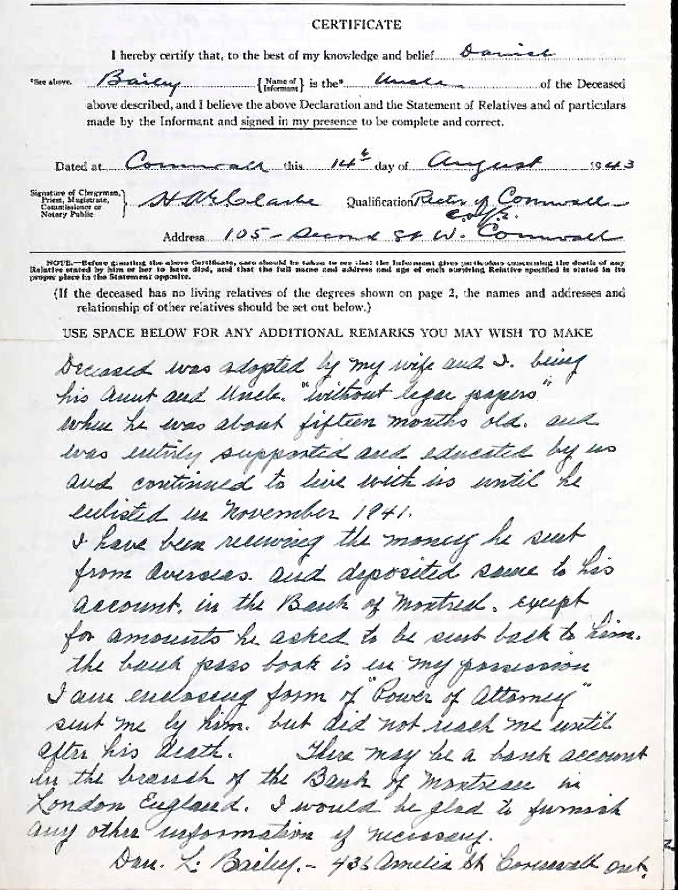 CERTIFICATE
I hereby certify that, to the best of my knowledge and belief Daniel
*See above. Bailey {Name of Informant} is the* Uncle of the Deceased
above described, and I believe the above Declaration and the Statement of Relatives and of particulars
made by the Informant and signed in my presence to be complete and correct.
Dated at Cornwall this 14th day of August 1943
Signature of Clergyman, Priest, Magistrate, Commissioner or Notary Public } Qualification Rector of Cornwall
Address 105 - Second St W. Cornwall
NOTE.—Before granting the above Certificate, care should be taken to see that the Informant gives particulars concerning the death of any
Relative stated by him or her to have died, and that the full name and address and age of each surviving Relative specified is stated in its
proper place in the Statement opposite.
(If the deceased has no living relatives of the degrees shown on page 2, the names and addresses and
relationship of other relatives should be set out below.)
USE SPACE BELOW FOR ANY ADDITIONAL REMARKS YOU MAY WISH TO MAKE
Deceased was adopted by my wife and I. being
his Aunt and Uncle. "without legal papers"
when he was about fifteen months old. and
was entirly supported and educated by us
and continued to live with us until he
enlisted in November 1941.
I have been receiving the money he sent
from overseas. and deposited same to his
account. in the Bank of Montreal. except
for amounts he asked to be sent back to him.
the bank pass book is in my possession
I am enclosing form of "Power of Attorney"
sent me by him. but did not reach me until
after his death. There may be a bank account
in the branch of the Bank of Montreal in
London England. I would be glad to furnish
any other information if necessary.
Dan. L. Bailey. - 436 Amelia St Cornwall Ont.